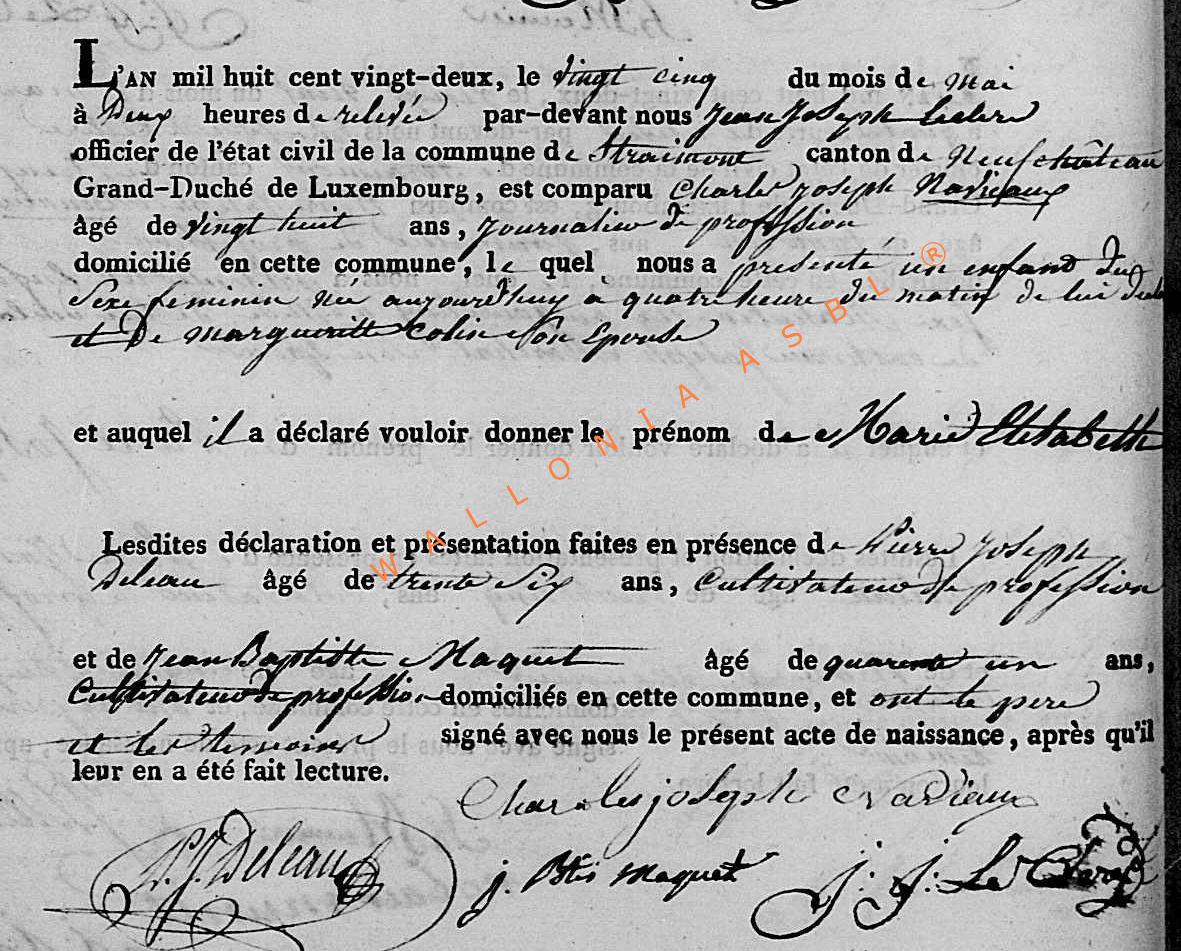 L'AN mil huit cent vingt-deux, le vingt cinq du mois de mai
à Deux heures de relevée par-devant nous Jean Joseph Leclere
officier de l'état civil de la commune de Straimont canton de Neufchâteau
Grand-Duché de Luxembourg, est comparu Charles Joseph Navieaux
âgé de vingt huit ans, journalier de profession
domicilié en cette commune, le quel nous a presenté un enfant du
Sexe feminin née aujourdhuy à quatre heure du matin de lui
et De margueritte Colin Son Epouse
et auquel il a déclaré vouloir donner le prénom de Marie Elisabeth
Lesdites déclaration et présentation faites en présence de Pierre Joseph
Deleau âgé de trente Six ans, Cultivateur de profession
et de Jean Baptiste Maquet âgé de quarente un ans,
Cultivateur de profession domiciliés en cette commune, et ont le pere
et les temoins signé avec nous le présent acte de naissance, après qu'il
leur en a été fait lecture.
Charles joseph Navieaux
P. J. Deleau j. Btis Maquet J: J: Le Clere
WALLONIA ASBL ®